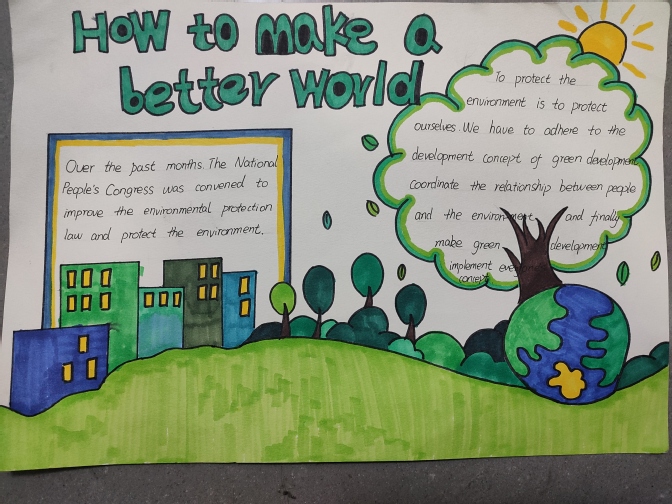 How to make a
better World
Over the past months. The National
People's Congress was convened to
improve the environmental protection
law and protect the environment.
To protect the
environment is to protect
ourselves. We have to adhere to the
development concept of green development
coordinate the relationship between people
and the environment and finally
make green development
implement
concept